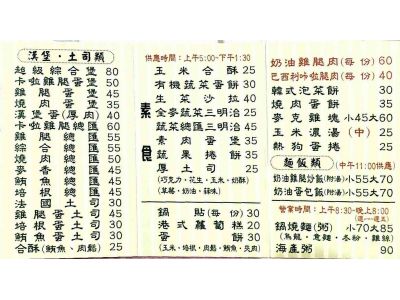 漢堡·土司類
超級綜合堡 80
卡啦雞腿蛋堡 50
雞腿蛋堡 50
燒肉蛋堡 35
漢堡蛋(厚肉) 40
卡啦雞腿總匯 60
雞腿總匯 55
綜合總匯 55
燒肉總匯 50
麥香總匯 50
培根總匯 50
法國土司 30
雞腿蛋土司 45
培根蛋土司 40
鮪魚蛋土司 40
合酥(鮪魚、肉鬆) 25
供應時間：上午5:00-下午1:30
素食
玉米合酥 25
有機蔬菜蛋餅 30
生菜沙拉 40
全麥蔬菜三明治 25
蔬菜總匯三明治 45
素肉蛋堡 35
蔬果捲餅 35
厚土司 25
(巧克力、花生、玉米、奶酥)
(草莓、奶油、蒜味)
鍋貼(每份) 30
港式蘿蔔糕 20
蛋餅 30
(玉米、培根、肉鬆、鮪魚、夾肉)
奶油雞腿肉(每份) 60
巴西利咔啦腿肉(每份) 40
韓式泡菜餅 30
燒肉蛋餅 30
麥克雞塊 小45大60
玉米濃湯 (中) 25
熱狗蛋捲 25
麵飯類 (中午11:00供應)
奶油雞腿炒飯(附湯) 小55大70
奶油蛋包飯(附湯) 小55大70
營業時間：上午8:30-晚上8:00
(週一~週五)
鍋燒麵(粥) 小70大85
(烏龍、意麵、冬粉、雞絲)
海產粥 90